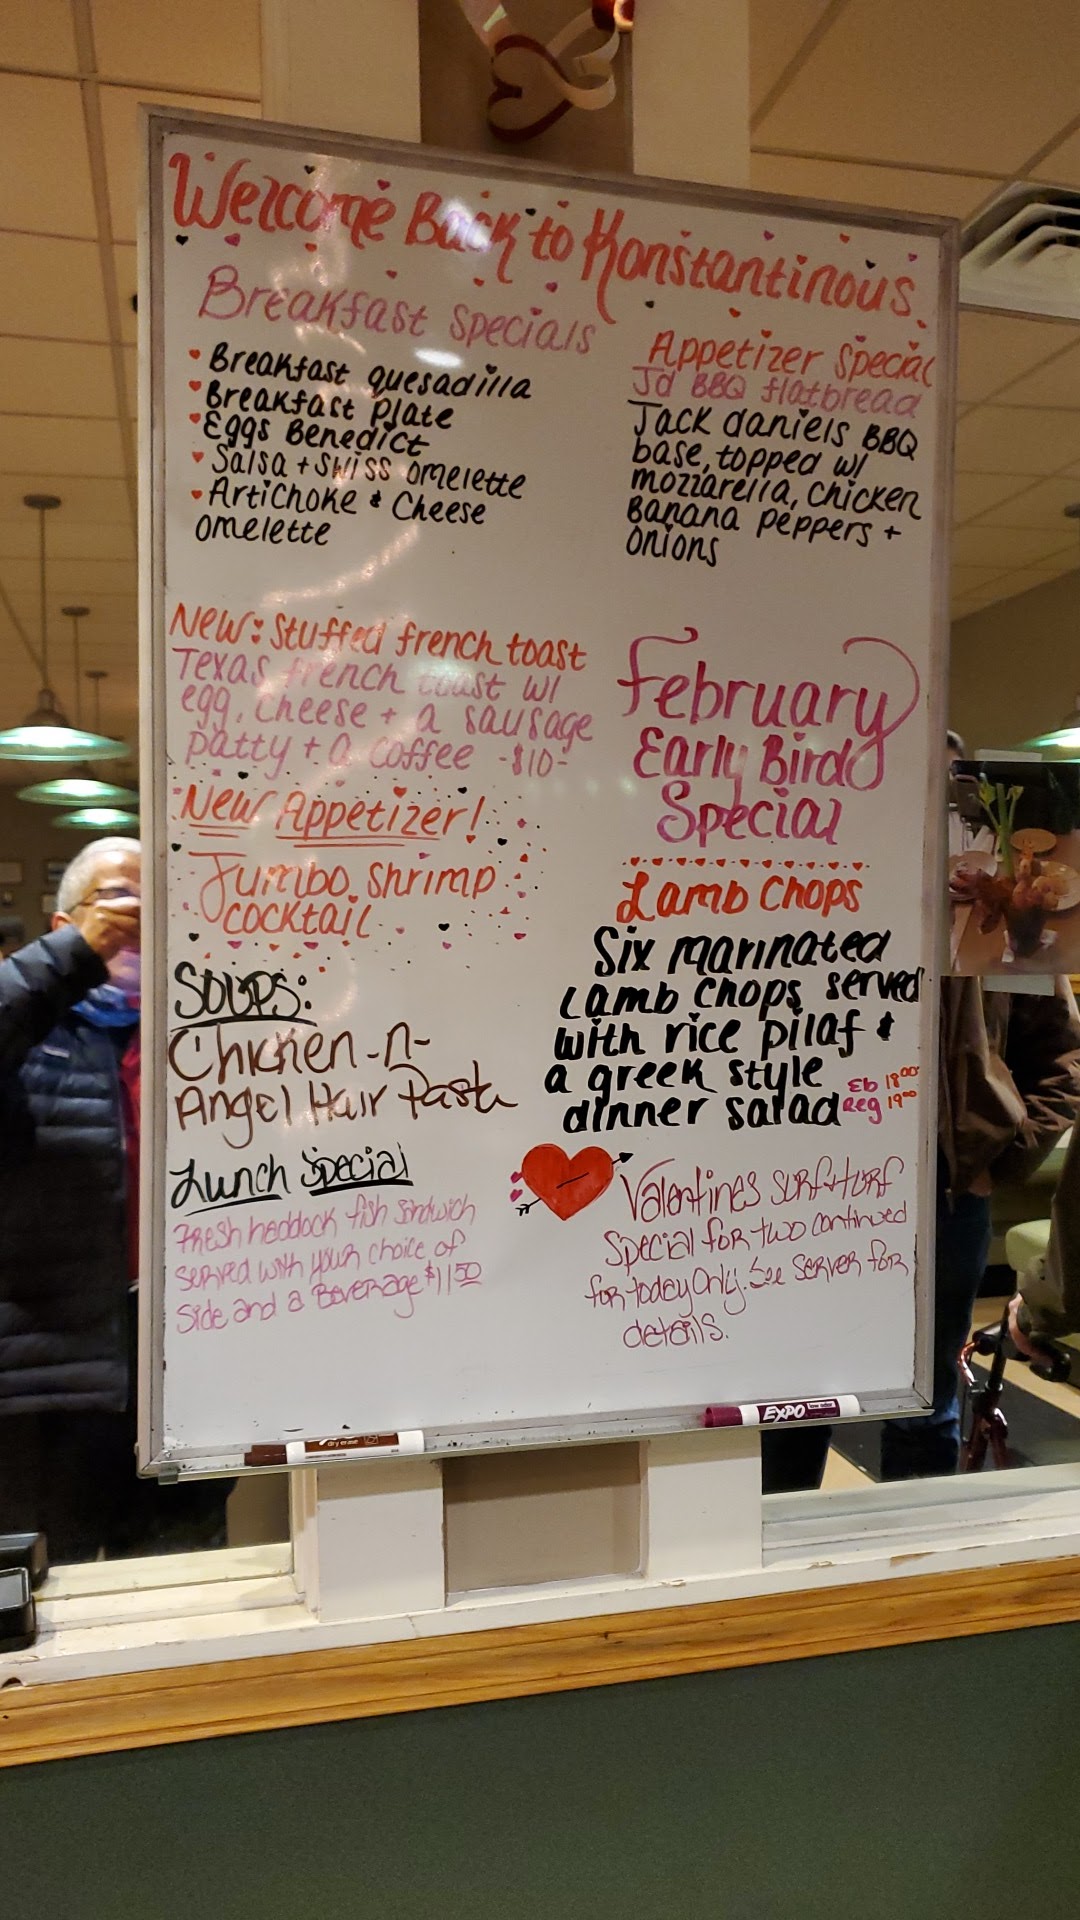 Welcome Back to Konstantinous
Breakfast Specials
Breakfast quesadilla
Breakfast Plate
Eggs Benedict
Salsa + swiss omelette
Artichoke & Cheese
omelette
New: Stuffed french toast
Texas french toast w/
egg, cheese + a sausage
patty + a coffee -$10-
New Appetizer!
Jumbo shrimp
cocktail
SOUPS:
Chicken-n-
Angel Hair Pasta
Lunch Special
Fresh haddock fish sandwich
served with your choice of
side and a Beverage $11.50
Appetizer Special
Jd BBQ flatbread
Jack daniels BBQ
base, topped w/
mozzarella, chicken
Banana peppers +
onions
February
Early Bird
Special
Lamb Chops
Six marinated
Lamb chops served
with rice pilaf &
a greek style
dinner salad
Eb 18.00
Reg 19.00
Valentines surf+turf
Special for two continued
for today only. See server for
details.
dry erase
EXPO